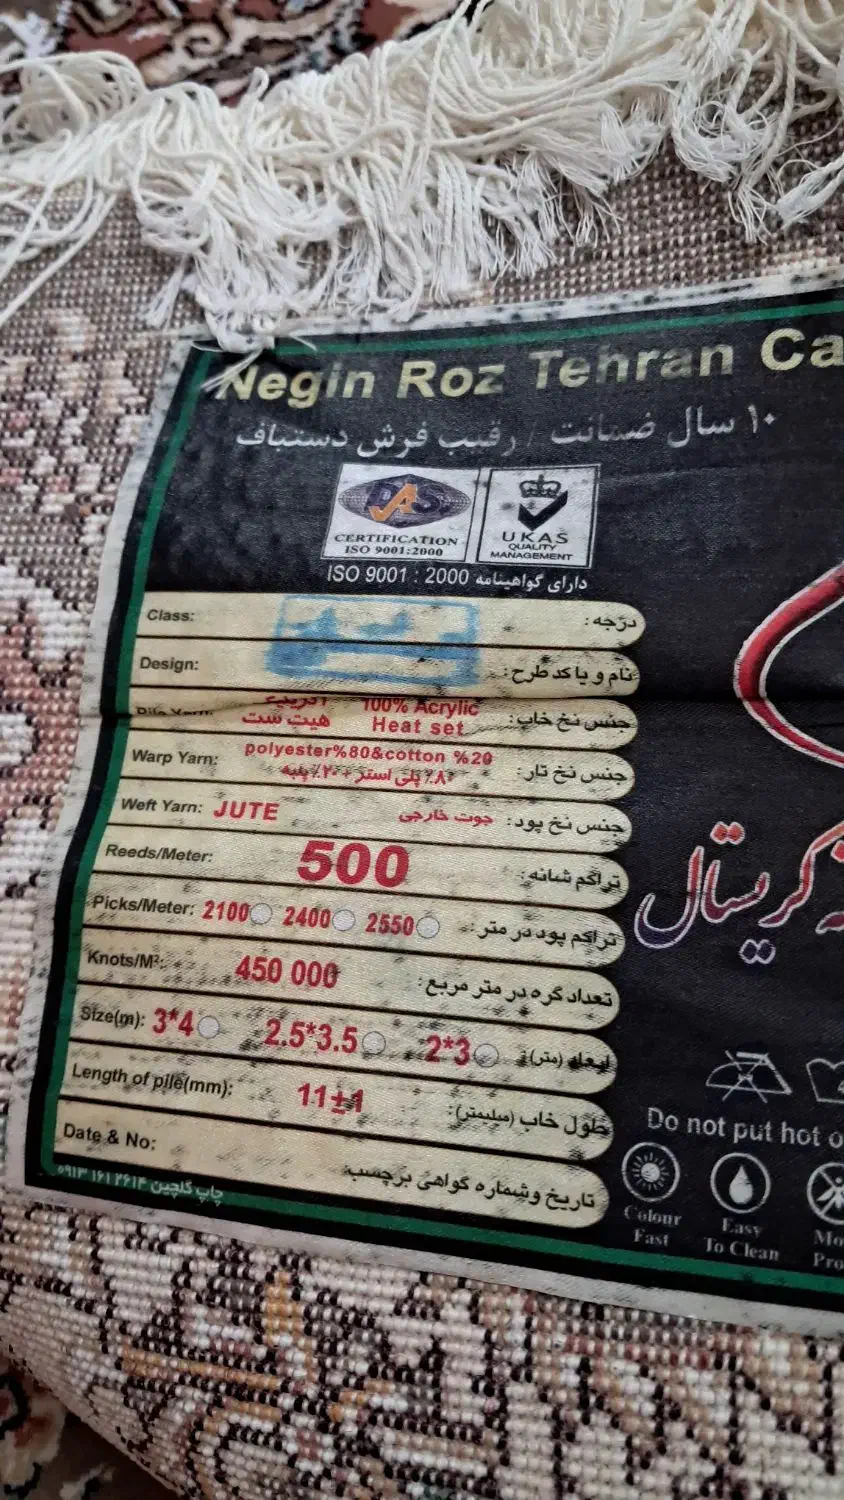 Negin Roz Tehran Ca
۱۰ سال ضمانت / رقیب فرش دستباف
DAS
CERTIFICATION
ISO 9001:2000
UKAS
QUALITY
MANAGEMENT
دارای گواهینامه ISO 9001 : 2000
Class: درجه :
Design: نام و یا کد طرح :
Pile Yarn: اکریلیک هیت ست 100% Acrylic Heat set جنس نخ خاب :
Warp Yarn: polyester%80&cotton %20 ۸۰٪ پلی استر + ۲۰٪ پنبه جنس نخ تار :
Weft Yarn: JUTE جوت خارجی جنس نخ پود :
Reeds/Meter: 500 تراکم شانه :
Picks/Meter: 2100 2400 2550 تراکم پود در متر :
Knots/M²: 450 000 تعداد گره در متر مربع :
Size(m): 3*4 2.5*3.5 2*3 ابعاد (متر) :
Length of pile(mm): 11±1 طول خاب (میلیمتر) :
Date & No: تاریخ و شماره گواهی برچسب
چاپ گلچین ۲۶۱۴ ۱۶۱ ۰۹۱۳
کریستال
Do not put hot o
Colour Fast
Easy To Clean
Mo
Pro